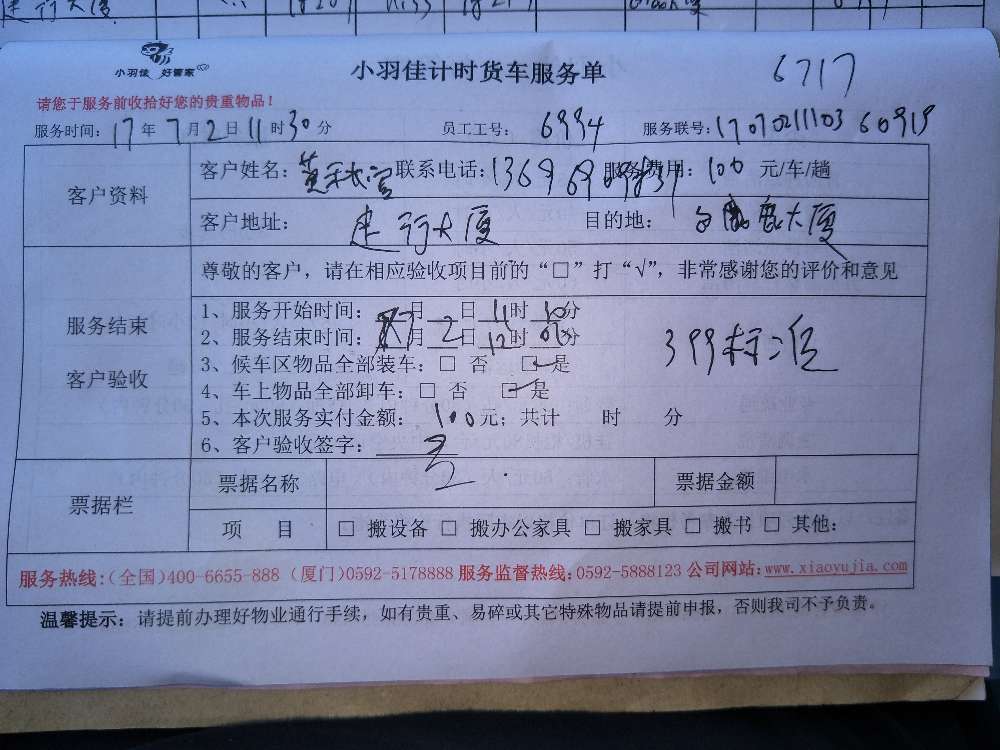 建行大厦
小羽佳 好管家
小羽佳计时货车服务单 6717
请您于服务前收拾好您的贵重物品!
服务时间: 17 年 7 月 2 日 11 时 30 分 员工工号: 6994 服务联号: 17070211103 60919
客户资料
客户姓名: 联系电话: 服务费用: 100 元/车/趟
客户地址: 建行大厦 目的地: 大厦
服务结束
客户验收
尊敬的客户，请在相应验收项目前的“□”打“√”，非常感谢您的评价和意见
1、服务开始时间: 月 日 11 时 分
2、服务结束时间: 月 2 日 12 时 分 399标准
3、候车区物品全部装车: □ 否 ☑ 是
4、车上物品全部卸车: □ 否 ☑ 是
5、本次服务实付金额: 100 元; 共计 时 分
6、客户验收签字:
票据栏
票据名称 票据金额
项 目 □ 搬设备 □ 搬办公家具 □ 搬家具 □ 搬书 □ 其他:
服务热线:(全国)400-6655-888 (厦门)0592-5178888 服务监督热线:0592-5888123 公司网站:www.xiaoyujia.com
温馨提示: 请提前办理好物业通行手续，如有贵重、易碎或其它特殊物品请提前申报，否则我司不予负责。